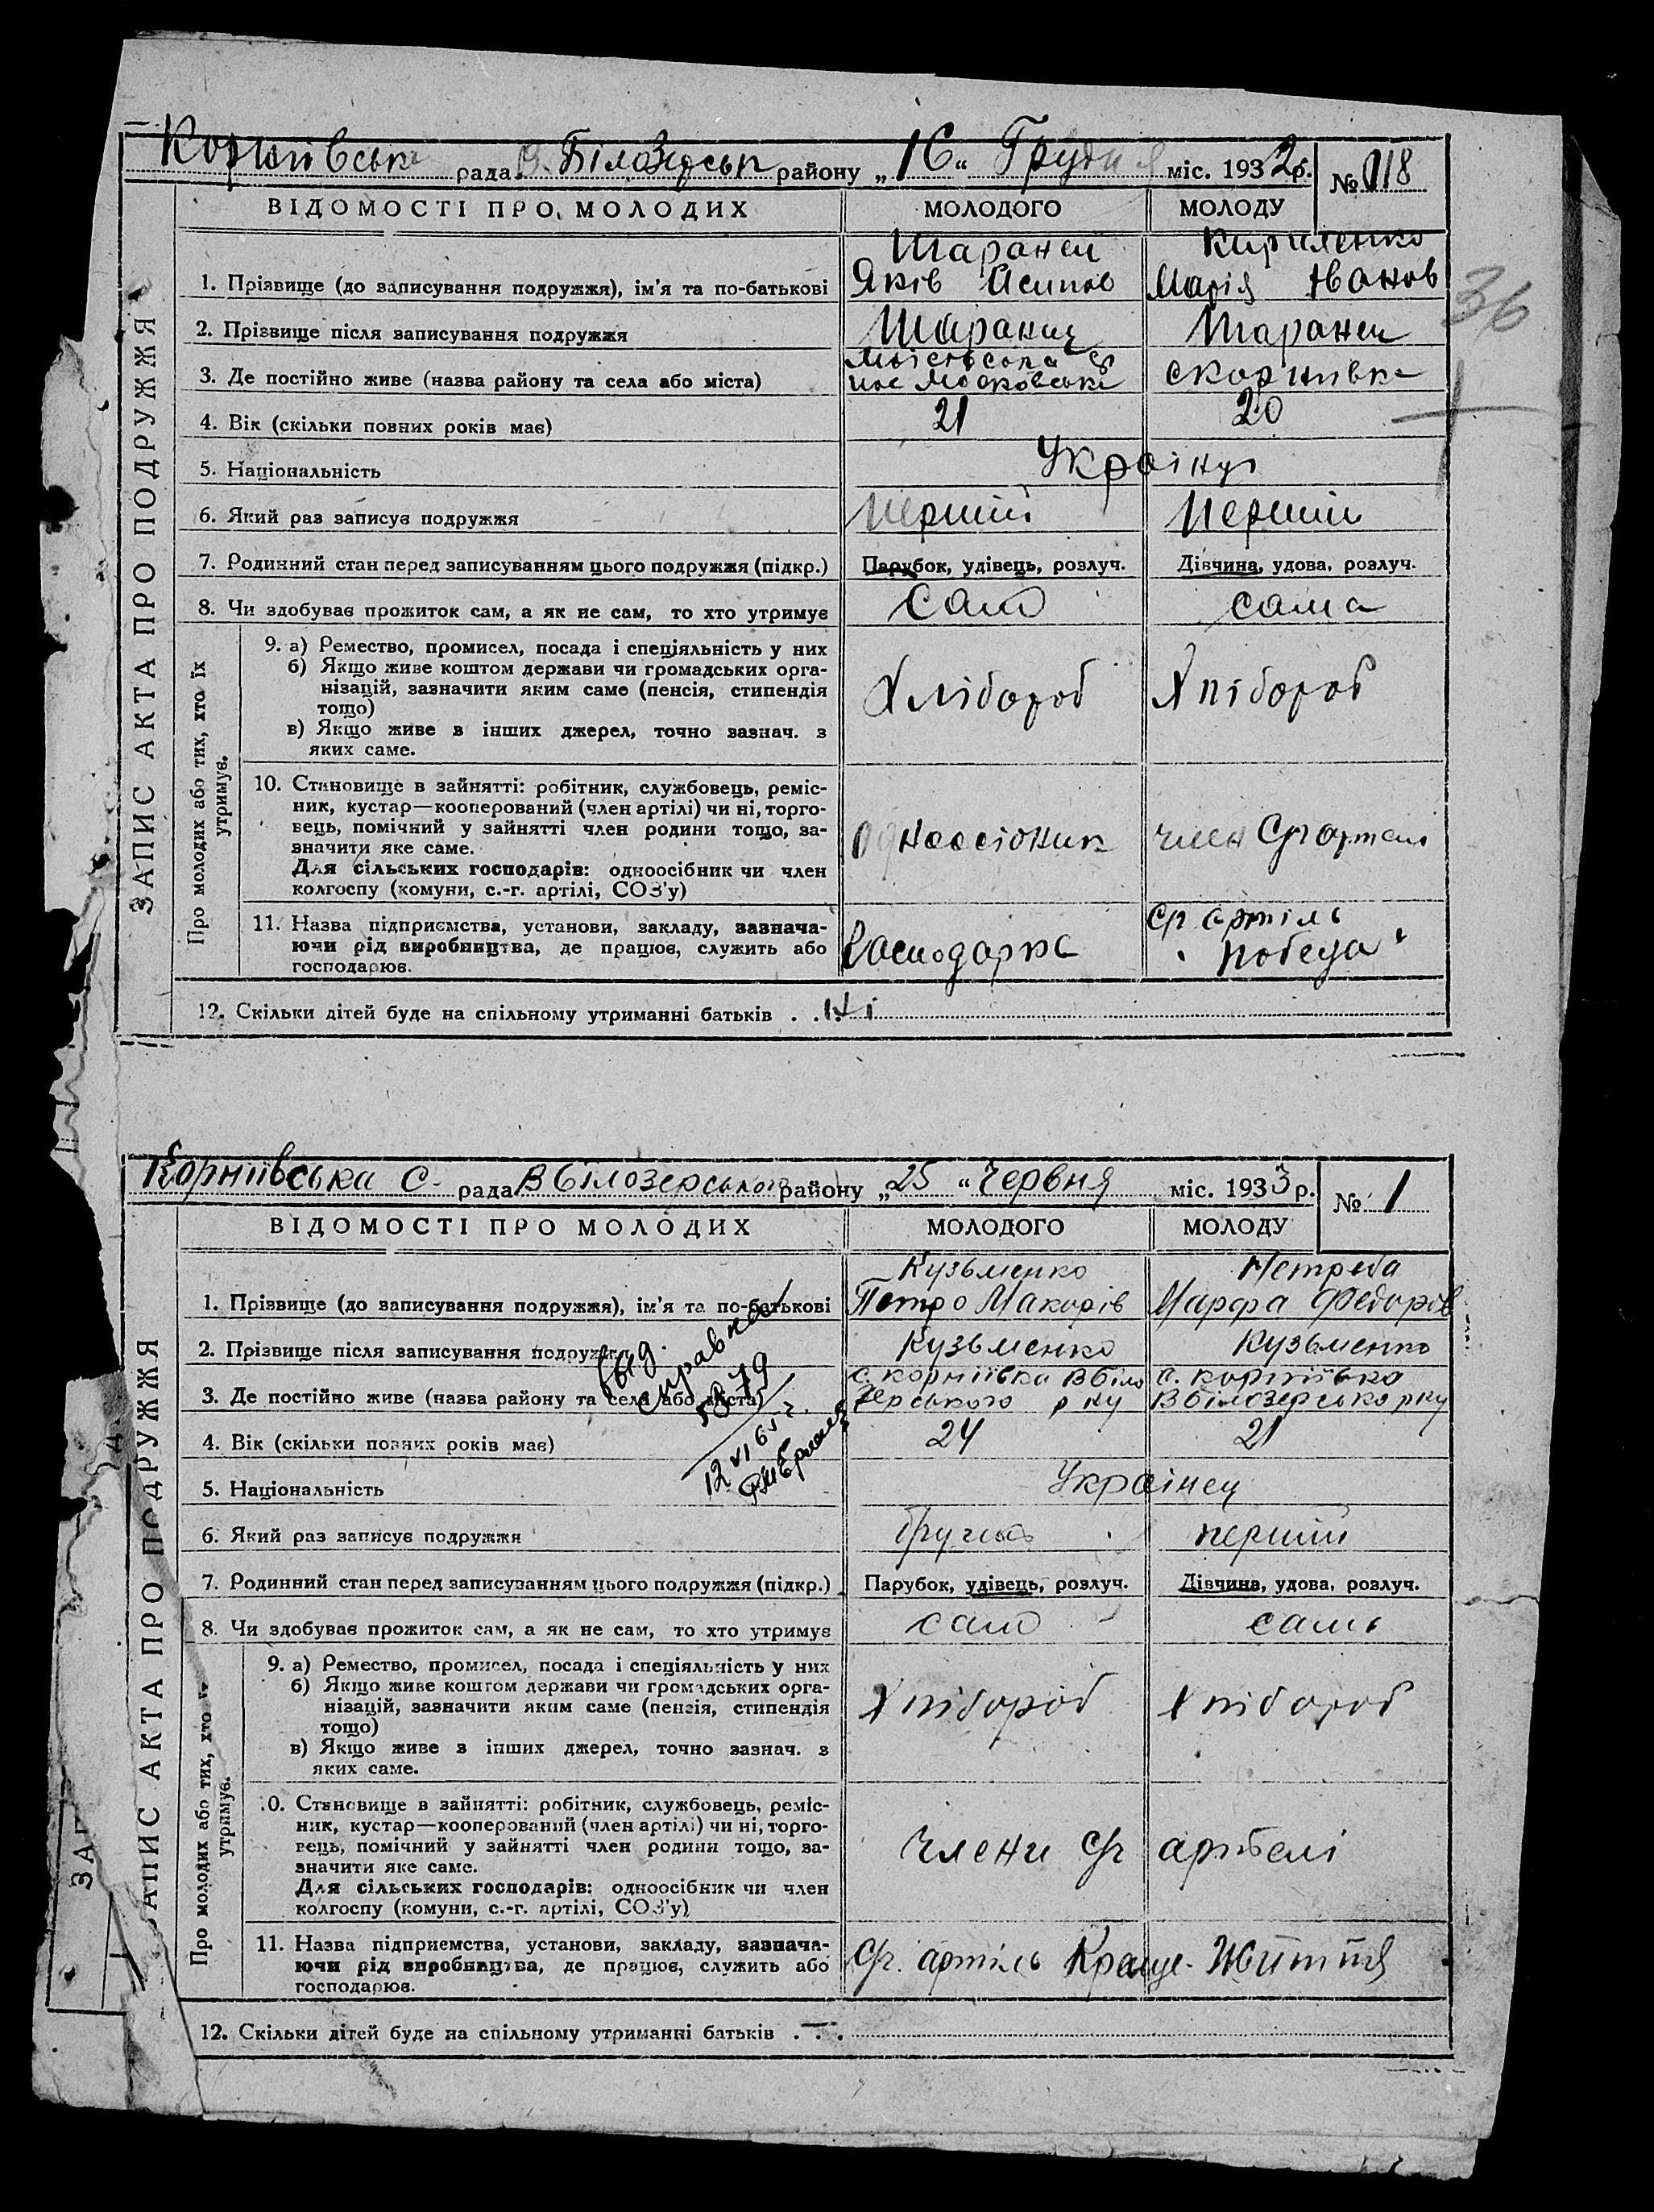 рада В. Білозерськ району „16“ Грудня міс. 1932 р. № 118
ВІДОМОСТІ ПРО МОЛОДИХ МОЛОДОГО МОЛОДУ
ЗАПИС АКТА ПРО ПОДРУЖЖЯ
Шаранец Кириленко
1. Прізвище (до записування подружжя), ім'я та по-батькові Яків Йсипов Марія Іванов
36
2. Прізвище після записування подружжя Шаранец Шаранец
3. Де постійно живе (назва району та села або міста)
4. Вік (скільки повних років має) 21 20
5. Національність Українці
6. Який раз записує подружжя Перший Перший
7. Родинний стан перед записуванням цього подружжя (підкр.) Парубок, удівець, розлуч. Дівчина, удова, розлуч.
8. Чи здобуває прожиток сам, а як не сам, то хто утримує сам сама
Про молодих або тих, хто їх утримує.
9. а) Ремество, промисел, посада і спеціяльність у них
б) Якщо живе коштом держави чи громадських орга-
нізацій, зазначити яким саме (пенсія, стипендія
тощо)
Хлібороб Хлібороб
в) Якщо живе з інших джерел, точно зазнач. з
яких саме.
10. Становище в зайнятті: робітник, службовець, реміс-
ник, кустар—кооперований (член артілі) чи ні, торго-
вець, помічний у зайнятті член родини тощо, за-
значити яке саме.
член Сг артелі
Для сільських господарів: одноосібник чи член
колгоспу (комуни, с.-г. артілі, СОЗ'у)
11. Назва підприємства, установи, закладу, зазнача-
ючи рід виробництва, де працює, служить або
господарює.
Господарка
Сг артіль
„Победа“
12. Скільки дітей буде на спільному утриманні батьків . . .
Корніівська С. рада В Білозерського району „25“ Червня міс. 1933 р. № 1
ВІДОМОСТІ ПРО МОЛОДИХ МОЛОДОГО МОЛОДУ
ЗАПИС АКТА ПРО ПОДРУЖЖЯ
Кузьменко Нетреба
1. Прізвище (до записування подружжя), ім'я та по-батькові Петро Макарів Марфа Федорів
2. Прізвище після записування подружжя Кузьменко Кузьменко
с. Корніівка В Біло с. Корніівка
3. Де постійно живе (назва району та села або міста) зерського р ну В Білозерсько р ну
Выд. справка
12 VI 65 г.
4. Вік (скільки повних років має) 24 21
5. Національність Українец
6. Який раз записує подружжя другий перший
7. Родинний стан перед записуванням цього подружжя (підкр.) Парубок, удівець, розлуч. Дівчина, удова, розлуч.
8. Чи здобуває прожиток сам, а як не сам, то хто утримує сам сама
Про молодих або тих, хто
утримує.
9. а) Ремество, промисел, посада і спеціяльність у них
б) Якщо живе коштом держави чи громадських орга-
нізацій, зазначити яким саме (пенсія, стипендія
тощо)
Хлібороб Хлібороб
в) Якщо живе з інших джерел, точно зазнач. з
яких саме.
.0. Становище в зайнятті: робітник, службовець, реміс-
ник, кустар—кооперований (член артілі) чи ні, торго-
вець, помічний у зайнятті член родини тощо, за-
значити яке саме.
члени Сг артелі
Для сільських господарів: одноосібник чи член
колгоспу (комуни, с.-г. артілі, СОЗ'у)
11. Назва підприємства, установи, закладу, зазнача-
ючи рід виробництва, де працює, служить або
господарює.
Сг. артіль Краще-Життя
12. Скільки дітей буде на спільному утриманні батьків . — . .
ЗАП